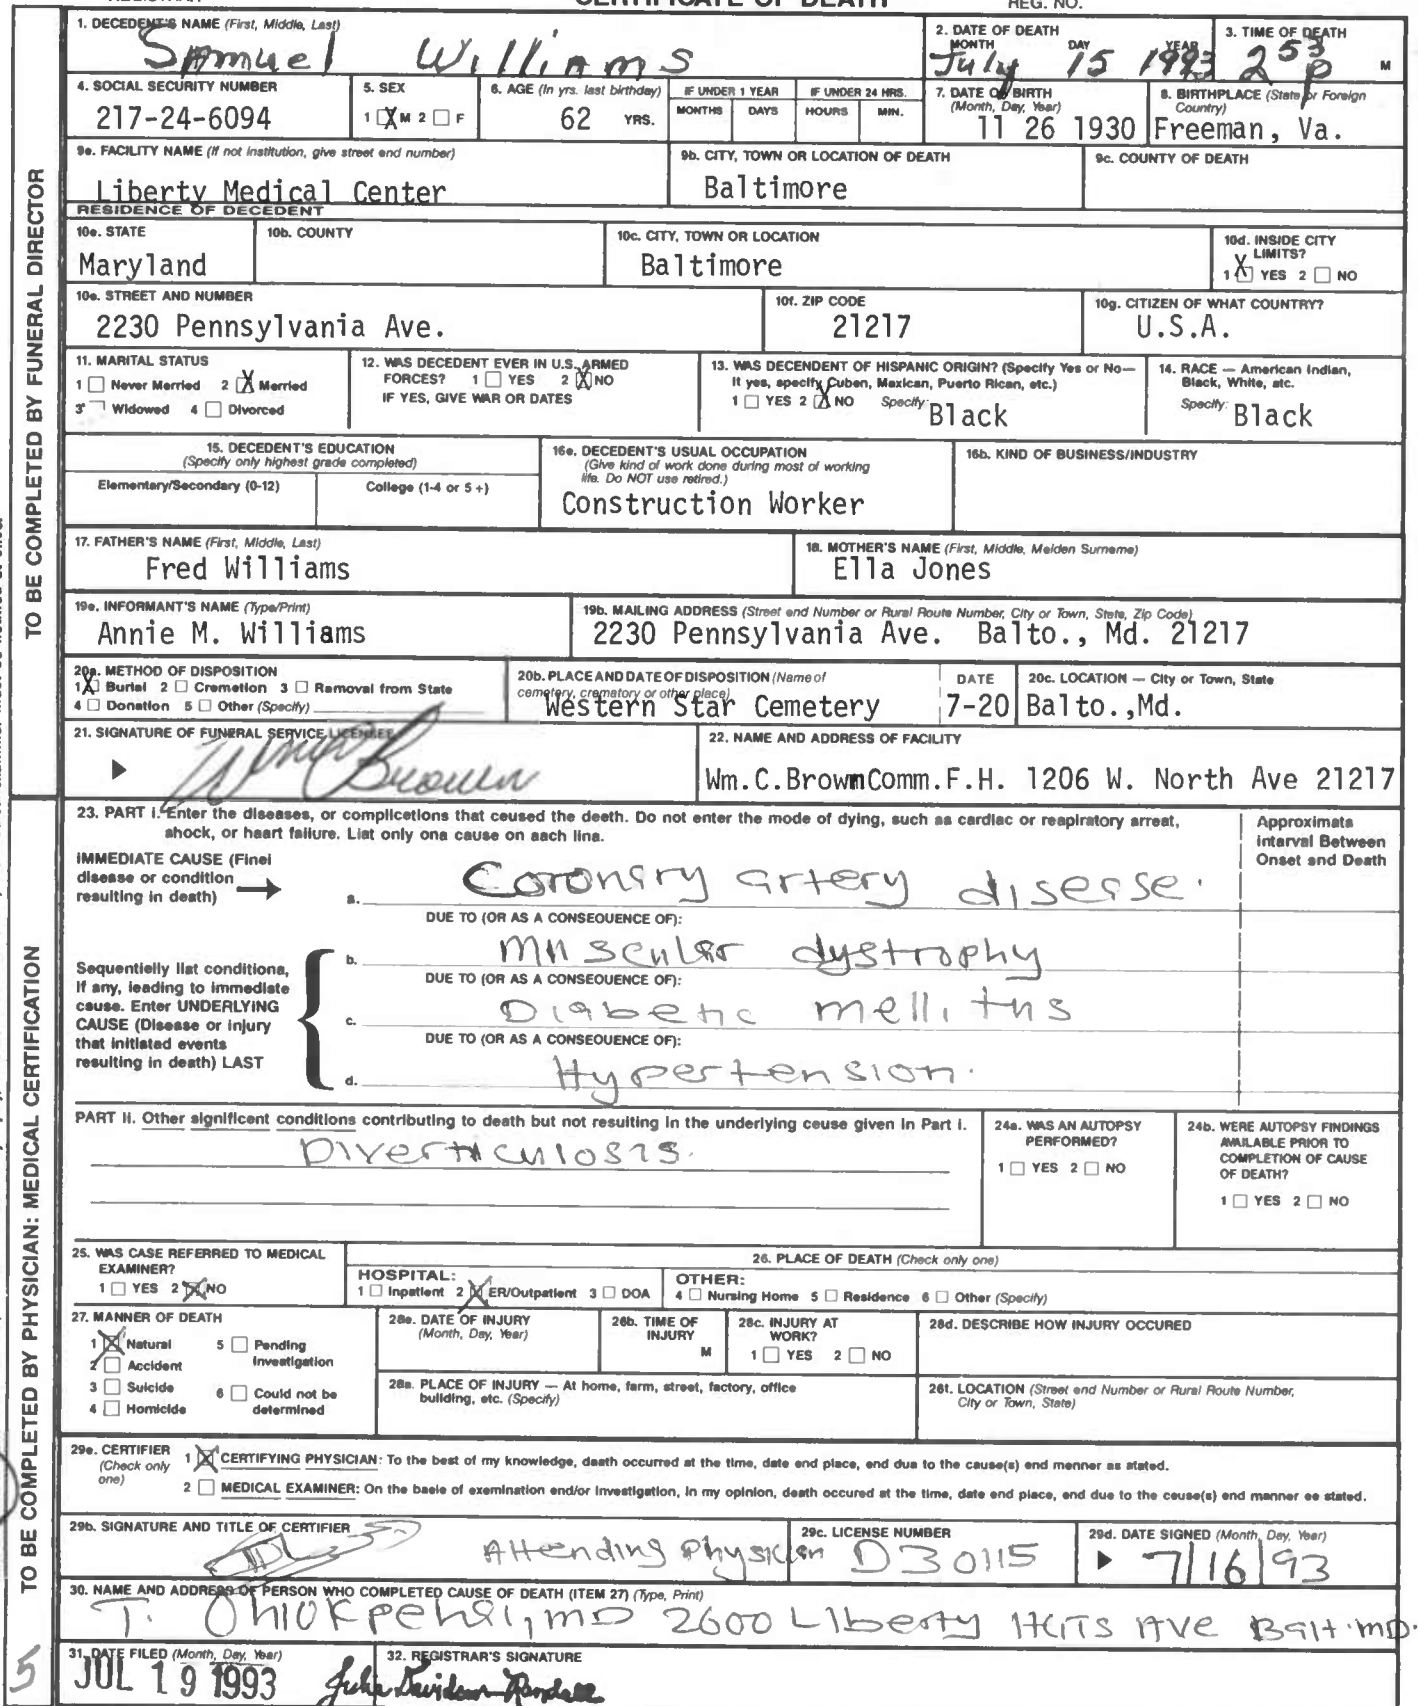 CERTIFICATE OF DEATH
REG. NO.
1. DECEDENT'S NAME (First, Middle, Last)
Samuel Williams
2. DATE OF DEATH
MONTH DAY YEAR
July 15 1993
3. TIME OF DEATH
2 53 p M
4. SOCIAL SECURITY NUMBER
217-24-6094
5. SEX
1 X M 2 F
6. AGE (In yrs. last birthday)
62 YRS.
IF UNDER 1 YEAR
MONTHS DAYS
IF UNDER 24 HRS.
HOURS MIN.
7. DATE OF BIRTH
(Month, Day, Year)
11 26 1930
8. BIRTHPLACE (State or Foreign
Country)
Freeman, Va.
9a. FACILITY NAME (If not institution, give street and number)
Liberty Medical Center
9b. CITY, TOWN OR LOCATION OF DEATH
Baltimore
9c. COUNTY OF DEATH
RESIDENCE OF DECEDENT
10a. STATE
Maryland
10b. COUNTY
10c. CITY, TOWN OR LOCATION
Baltimore
10d. INSIDE CITY
LIMITS?
1 X YES 2 NO
10e. STREET AND NUMBER
2230 Pennsylvania Ave.
10f. ZIP CODE
21217
10g. CITIZEN OF WHAT COUNTRY?
U.S.A.
11. MARITAL STATUS
1 Never Married 2 X Married
3 Widowed 4 Divorced
12. WAS DECEDENT EVER IN U.S. ARMED
FORCES? 1 YES 2 X NO
IF YES, GIVE WAR OR DATES
13. WAS DECENDENT OF HISPANIC ORIGIN? (Specify Yes or No—
It yes, specify Cuban, Mexican, Puerto Rican, etc.)
1 YES 2 X NO Specify: Black
14. RACE — American Indian,
Black, White, etc.
Specify: Black
15. DECEDENT'S EDUCATION
(Specify only highest grade completed)
Elementary/Secondary (0-12) College (1-4 or 5 +)
16a. DECEDENT'S USUAL OCCUPATION
(Give kind of work done during most of working
life. Do NOT use retired.)
Construction Worker
16b. KIND OF BUSINESS/INDUSTRY
17. FATHER'S NAME (First, Middle, Last)
Fred Williams
18. MOTHER'S NAME (First, Middle, Maiden Surname)
Ella Jones
19a. INFORMANT'S NAME (Type/Print)
Annie M. Williams
19b. MAILING ADDRESS (Street and Number or Rural Route Number, City or Town, State, Zip Code)
2230 Pennsylvania Ave. Balto., Md. 21217
20a. METHOD OF DISPOSITION
1 X Burial 2 Cremation 3 Removal from State
4 Donation 5 Other (Specify)
20b. PLACE AND DATE OF DISPOSITION (Name of
cemetery, crematory or other place)
Western Star Cemetery
DATE
7-20
20c. LOCATION — City or Town, State
Balto.,Md.
21. SIGNATURE OF FUNERAL SERVICE LICENSEE
Brown
22. NAME AND ADDRESS OF FACILITY
Wm.C.BrownComm.F.H. 1206 W. North Ave 21217
TO BE COMPLETED BY FUNERAL DIRECTOR
23. PART I. Enter the diseases, or complications that caused the death. Do not enter the mode of dying, such as cardiac or respiratory arrest,
shock, or heart failure. List only one cause on each line.
Approximate
Interval Between
Onset and Death
IMMEDIATE CAUSE (Final
disease or condition
resulting in death)
a. Coronary artery disease.
DUE TO (OR AS A CONSEQUENCE OF):
b. Muscular dystrophy
DUE TO (OR AS A CONSEQUENCE OF):
c. Diabetic mellitus
DUE TO (OR AS A CONSEQUENCE OF):
d. Hypertension.
Sequentially list conditions,
If any, leading to immediate
cause. Enter UNDERLYING
CAUSE (Disease or injury
that initiated events
resulting in death) LAST
PART II. Other significant conditions contributing to death but not resulting in the underlying cause given in Part I.
Diverticulosis.
24a. WAS AN AUTOPSY
PERFORMED?
1 YES 2 NO
24b. WERE AUTOPSY FINDINGS
AVAILABLE PRIOR TO
COMPLETION OF CAUSE
OF DEATH?
1 YES 2 NO
25. WAS CASE REFERRED TO MEDICAL
EXAMINER?
1 YES 2 X NO
26. PLACE OF DEATH (Check only one)
HOSPITAL:
1 Inpatient 2 X ER/Outpatient 3 DOA
OTHER:
4 Nursing Home 5 Residence 6 Other (Specify)
27. MANNER OF DEATH
1 X Natural 5 Pending
Investigation
2 Accident
3 Suicide 6 Could not be
determined
4 Homicide
28a. DATE OF INJURY
(Month, Day, Year)
28b. TIME OF
INJURY
M
28c. INJURY AT
WORK?
1 YES 2 NO
28d. DESCRIBE HOW INJURY OCCURED
28e. PLACE OF INJURY — At home, farm, street, factory, office
building, etc. (Specify)
28f. LOCATION (Street and Number or Rural Route Number,
City or Town, State)
29a. CERTIFIER
(Check only
one)
1 X CERTIFYING PHYSICIAN: To the best of my knowledge, death occurred at the time, date and place, and due to the cause(s) and manner as stated.
2 MEDICAL EXAMINER: On the basis of examination and/or investigation, in my opinion, death occured at the time, date and place, and due to the cause(s) and manner as stated.
29b. SIGNATURE AND TITLE OF CERTIFIER
Attending Physician
29c. LICENSE NUMBER
D30115
29d. DATE SIGNED (Month, Day, Year)
7/16/93
30. NAME AND ADDRESS OF PERSON WHO COMPLETED CAUSE OF DEATH (ITEM 27) (Type, Print)
T. MD 2600 Liberty HGTS AVE Balt. MD.
31. DATE FILED (Month, Day, Year)
JUL 19 1993
32. REGISTRAR'S SIGNATURE
Julia Davidson-Randall
TO BE COMPLETED BY PHYSICIAN: MEDICAL CERTIFICATION
5